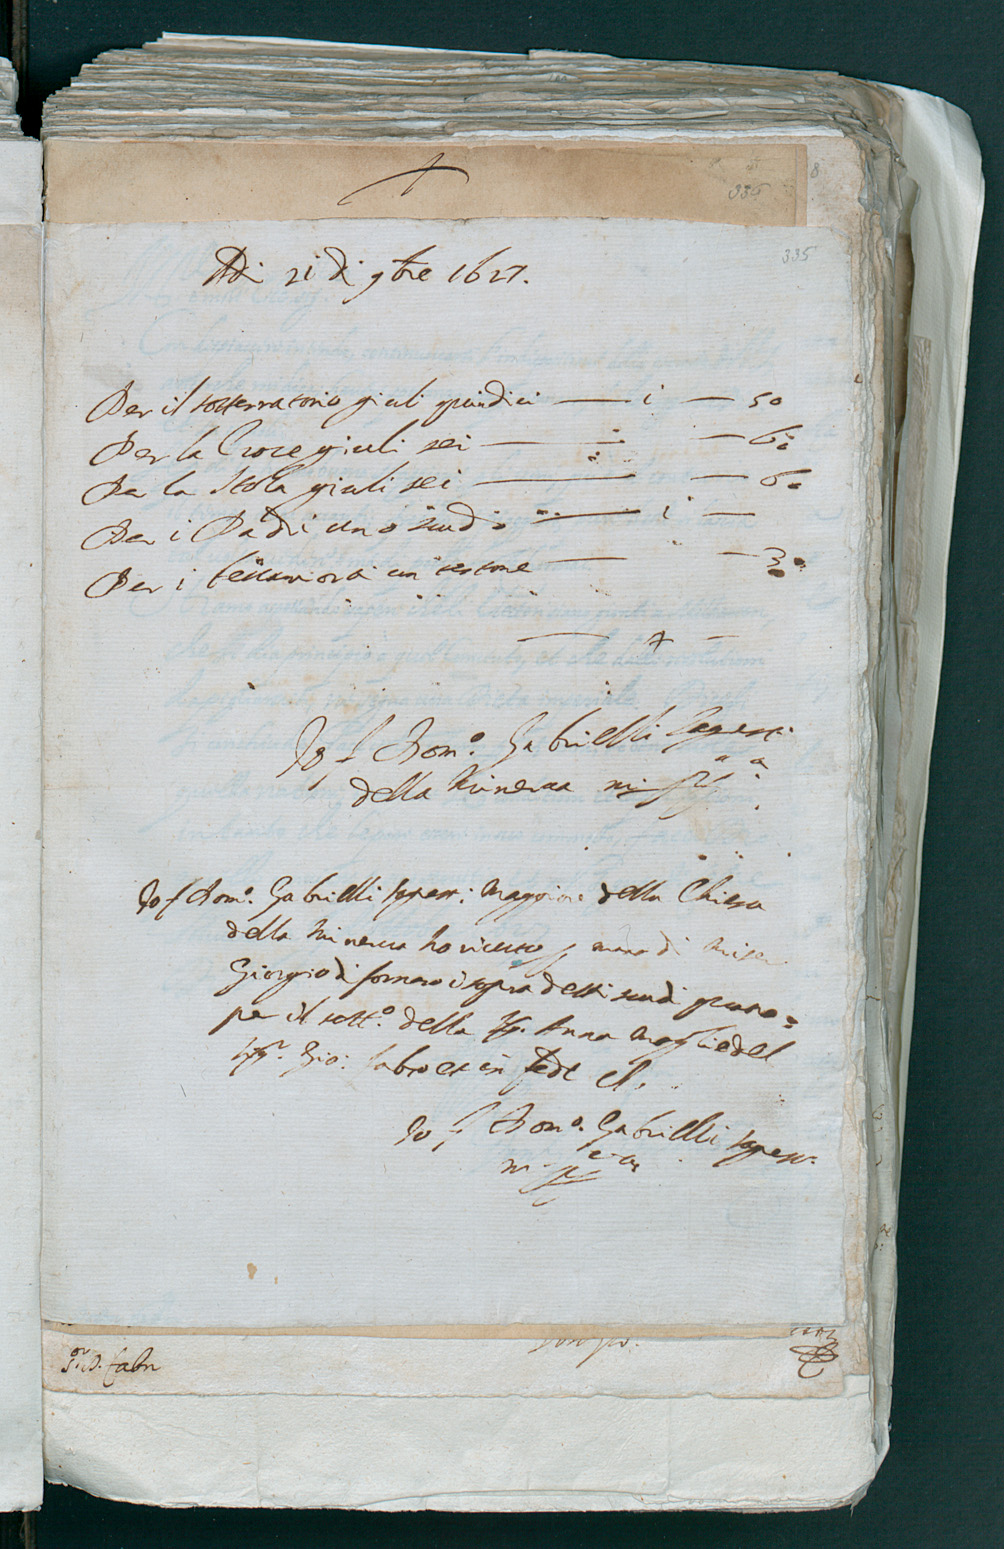 335
8
335
Adi 21 di 9bre 1627.
Per il sotterratorio giuli quindici — i — 50
Per la Croce giuli sei — — 60
Per la Stola giuli sei — — 60
Per i Padri uno scudo — i —
Per i un testone — — 30
— 4 —
Io f Dom.º Gabrielli Sagrest.
della Minerva mº pp.ª
Io f Dom.º Gabrielli sagres: Maggiore della Chiesa
della Minerva ho ricevuto p mano di
Giorgio di fornaro i sopra detti scudi quatro
per il sott.º della Sig. Anna Moglie del
Sig.r Gio: fabro et in fede &.
Io f Dom.º Gabrielli sagres.
m. pp.ª